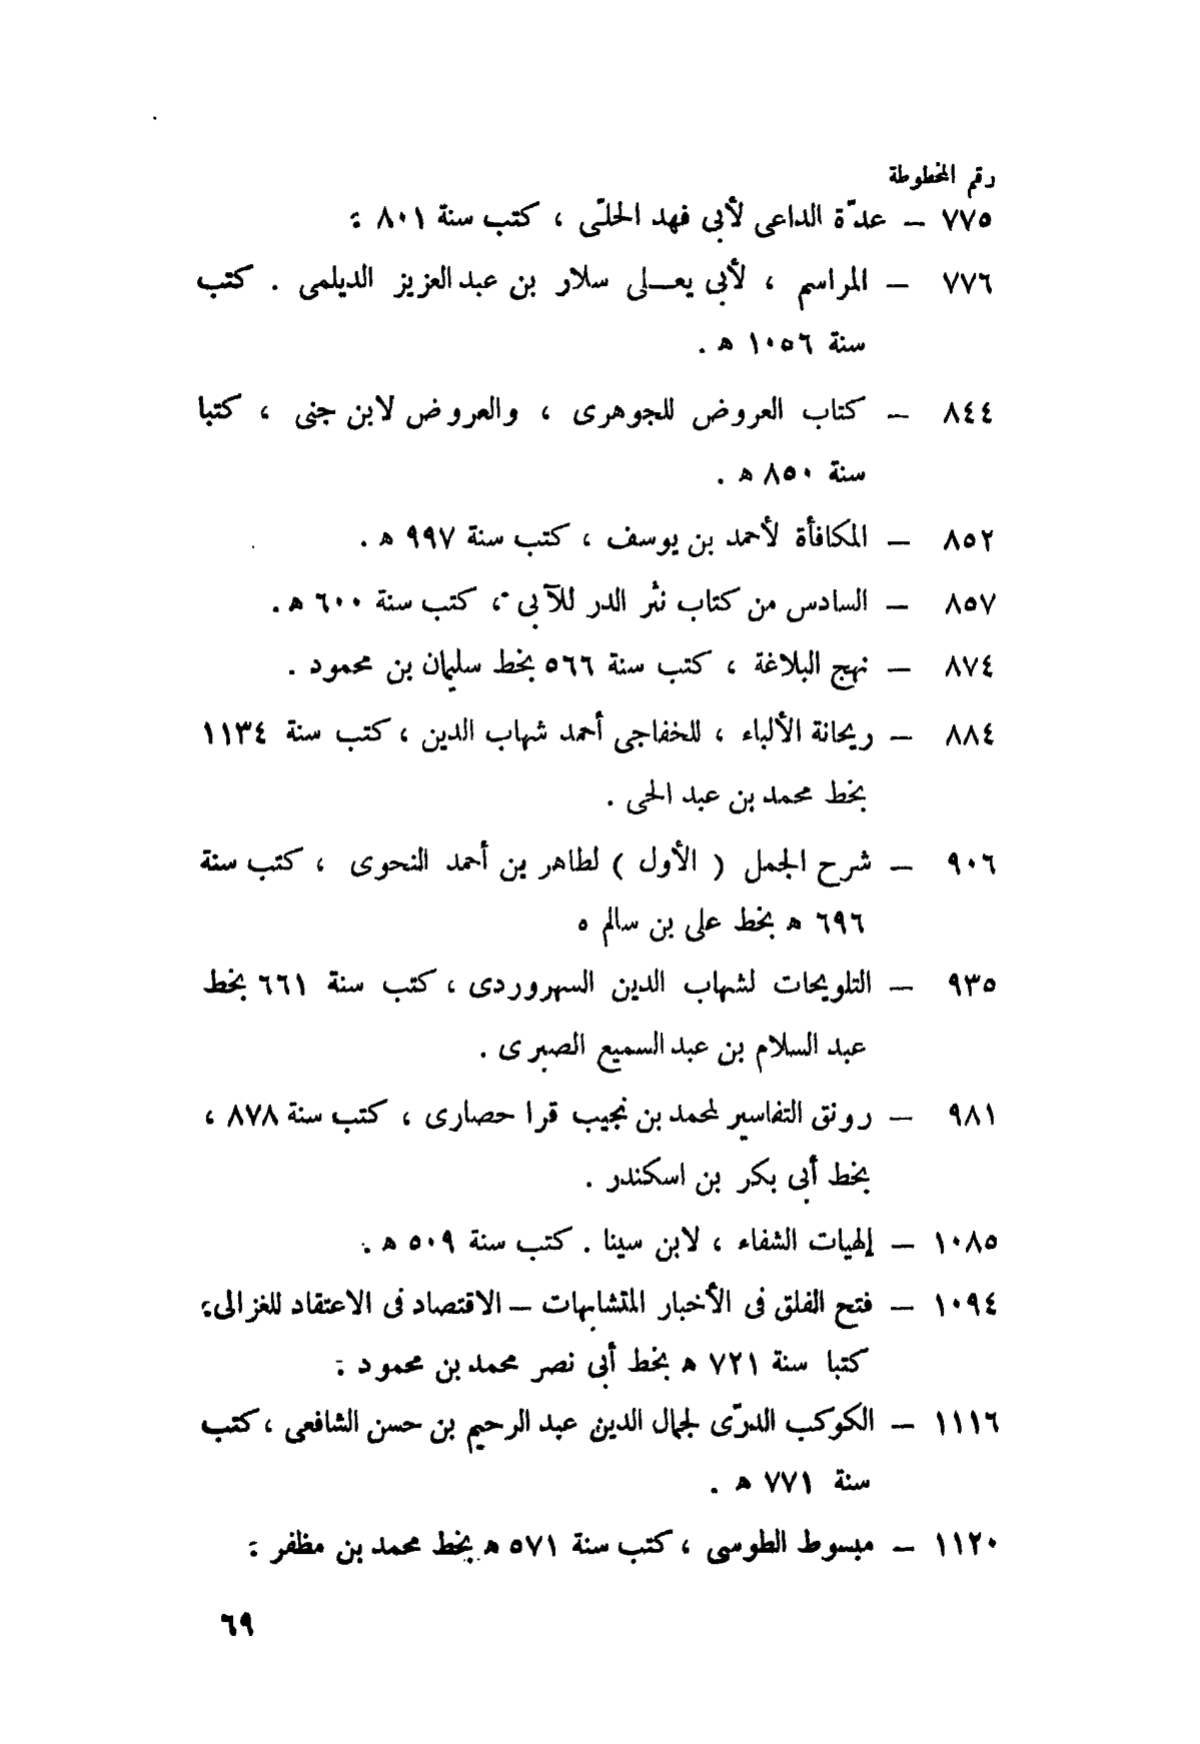 رقم المخطوطة
٧٧٥ — عدّة الداعى لأبى فهد الحلّى ، كتب سنة ٨٠١ :
٧٧٦ — المراسم ، لأبى يعـــلى سلار بن عبد العزيز الديلمى . كتب
سنة ١٠٥٦ ه .
٨٤٤ — كتاب العروض للجوهرى ، والعروض لابن جنى ، كتبا
سنة ٨٥٠ ه .
٨٥٢ — المكافأة لأحمد بن يوسف ، كتب سنة ٩٩٧ ه .
٨٥٧ — السادس من كتاب نثر الدر للآبى ، كتب سنة ٦٠٠ ه .
٨٧٤ — نهج البلاغة ، كتب سنة ٥٦٦ بخط سليمان بن محمود .
٨٨٤ — ريحانة الألباء ، للخفاجى أحمد شهاب الدين ، كتب سنة ١١٣٤
بخط محمد بن عبد الحى .
٩٠٦ — شرح الجمل ( الأول ) لطاهر بن أحمد النحوى ، كتب سنة
٦٩٦ ه بخط على بن سالم ٥
٩٣٥ — التلويحات لشهاب الدين السهروردى ، كتب سنة ٦٦١ بخط
عبد السلام بن عبد السميع الصبرى .
٩٨١ — رونق التفاسير لمحمد بن نجيب قرا حصارى ، كتب سنة ٨٧٨ ،
بخط أبى بكر بن اسكندر .
١٠٨٥ — إلهيات الشفاء ، لابن سينا . كتب سنة ٥٠٩ ه .
١٠٩٤ — فتح الفلق فى الأخبار المتشابهات — الاقتصاد فى الاعتقاد للغزالى ؛
كتبا سنة ٧٢١ ه بخط أبى نصر محمد بن محمود :
١١١٦ — الكوكب الدرّى لجمال الدين عبد الرحيم بن حسن الشافعى ، كتب
سنة ٧٧١ ه .
١١٢٠ — مبسوط الطوسى ، كتب سنة ٥٧١ ه بخط محمد بن مظفر :
٦٩